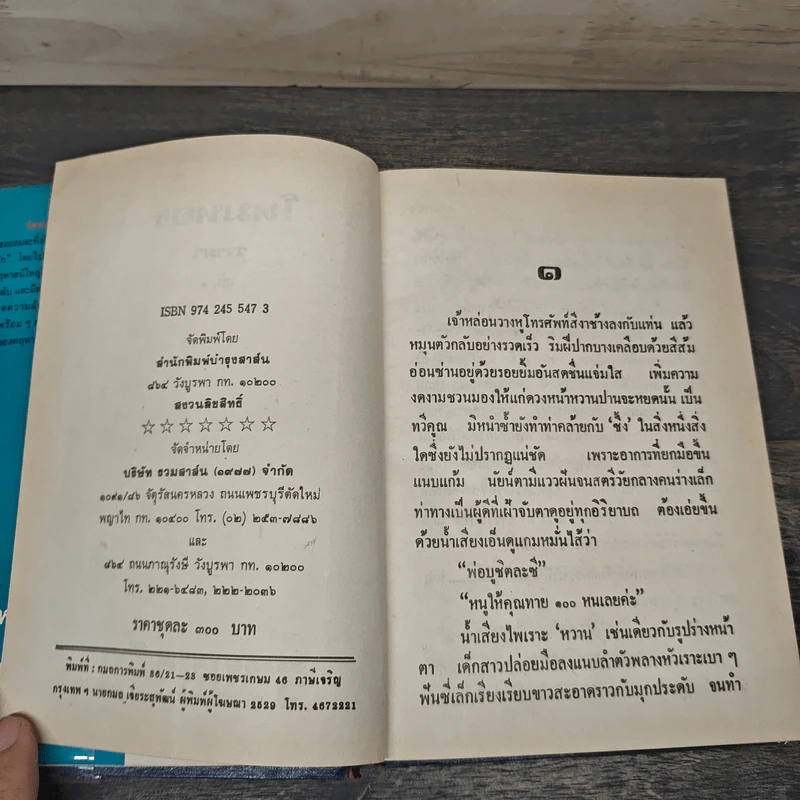 ISBN 974 245 547 3
จัดพิมพ์โดย
สำนักพิมพ์บำรุงสาส์น
๘๖๔ วังบูรพา กท. ๑๐๒๐๐
สงวนลิขสิทธิ์
☆☆☆☆☆☆☆
จัดจำหน่ายโดย
บริษัท รวมสาส์น (๑๙๗๗) จำกัด
๑๐๙๑/๔๖ จัตุรัสนครหลวง ถนนเพชรบุรีตัดใหม่
พญาไท กท. ๑๐๔๐๐ โทร. (๐๒) ๒๕๓-๗๘๘๖
และ
๘๖๔ ถนนภาณุรังษี วังบูรพา กท. ๑๐๒๐๐
โทร. ๒๒๑-๖๔๘๓, ๒๒๒-๒๐๓๖
ราคาชุดละ ๓๐๐ บาท
พิมพ์ที่ : กมลการพิมพ์ 36/21-23 ซอยเพชรเกษม 46 ภาษีเจริญ
กรุงเทพ ฯ นายกมล เชียระสุพัฒน์ ผู้พิมพ์ผู้โฆษณา 2529 โทร. 4672221
๑
เจ้าหล่อนวางหูโทรศัพท์สีงาช้างลงกับแท่น แล้ว
หมุนตัวกลับอย่างรวดเร็ว ริมฝีปากบางเคลือบด้วยสีส้ม
อ่อนซ่านอยู่ด้วยรอยยิ้มอันสดชื่นแจ่มใส เพิ่มความ
งดงามชวนมองให้แก่ดวงหน้าหวานปานจะหยดนั้น เป็น
ทวีคูณ มิหนำซ้ำยังทำท่าคล้ายกับ ‘ซึ้ง’ ในสิ่งหนึ่งสิ่ง
ใดซึ่งยังไม่ปรากฏแน่ชัด เพราะอาการที่ยกมือขึ้น
แนบแก้ม นัยน์ตามีแววฝันจนสตรีวัยกลางคนร่างเล็ก
ท่าทางเป็นผู้ดีที่เฝ้าจับตาดูอยู่ทุกอิริยาบถ ต้องเอ่ยขึ้น
ด้วยน้ำเสียงเอ็นดูแกมหมั่นไส้ว่า
“พ่อบูชิตละซี”
“หนูให้คุณทาย ๑๐๐ หนเลยค่ะ”
น้ำเสียงไพเราะ ‘หวาน’ เช่นเดียวกับรูปร่างหน้า
ตา เด็กสาวปล่อยมือลงแนบลำตัวพลางหัวเราะเบา ๆ
ฟันซี่เล็กเรียงเรียบขาวสะอาดราวกับมุกประดับ จนทำ